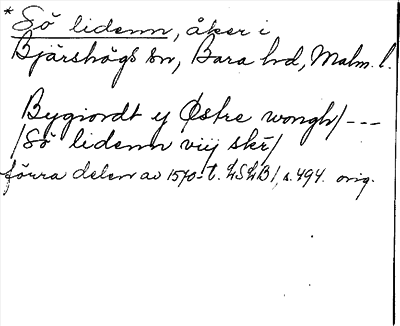 * Sö lidenn, åker i
Bjärshögs sn, Bara hd, Malm. l.
Bygiordt y Østre wongh/---
/Sö lidenn viij skr/
förra delen av 1570-t. LSLB1, s. 494. orig.